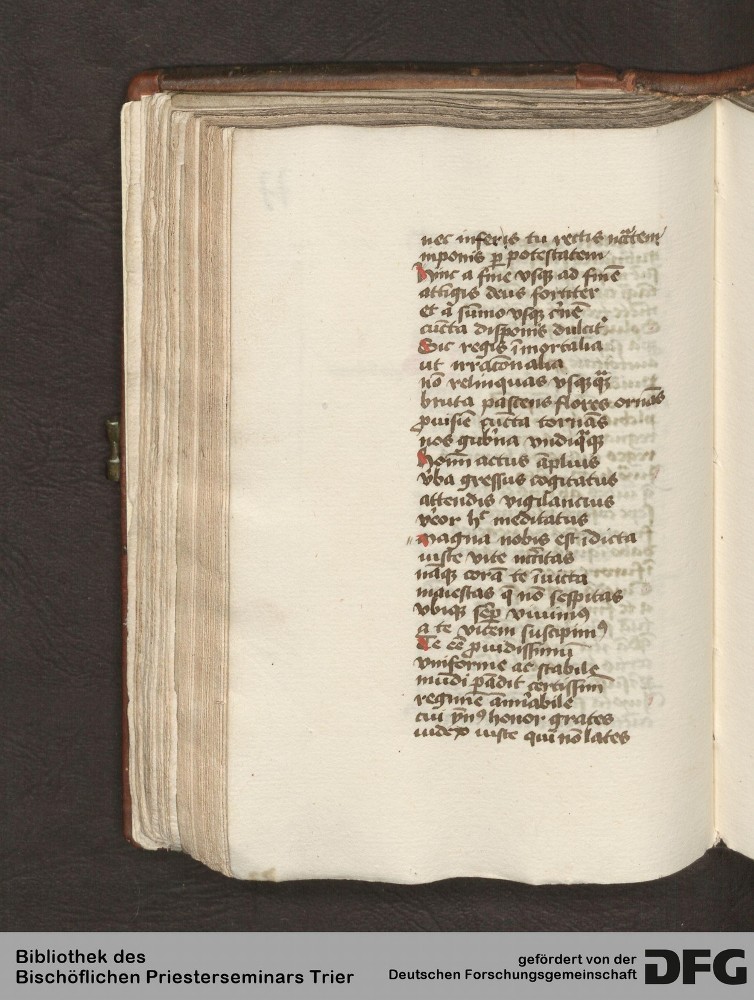 nec inferis tu rectis
inponis ꝑ potestatem
hinc a fine vsqꝫ ad finē
attigis deus fortiter
et a sūmo vsqꝫ
cūcta disponis dulcit᷑
Sic regis īmortalia
ut irracōnalia
nō relinquas vsqꝫqꝫ
bruta pascens flores ornās
ꝓuisiōe cūcta tornās
nos gub᷑na vndiqꝫ
hoīm actus āplius
v᷑ba gressus cogitatus
attendis vigilancius
meditatus
magna nobis est īdicta
iuste vite
nāqꝫ corā te īuicta
maiestas q̄ nō sespitas
vbiqꝫ semꝑ viuimꝰ
a te vitem suscipimꝰ
Te eē ꝓuidissimū
vniforme ac stabile
mūdi certissim̄
regimē
cui honor grates
iudex iuste qui nō lates
Bibliothek des
Bischöflichen Priesterseminars Trier
gefördert von der
Deutschen Forschungsgemeinschaft
DFG